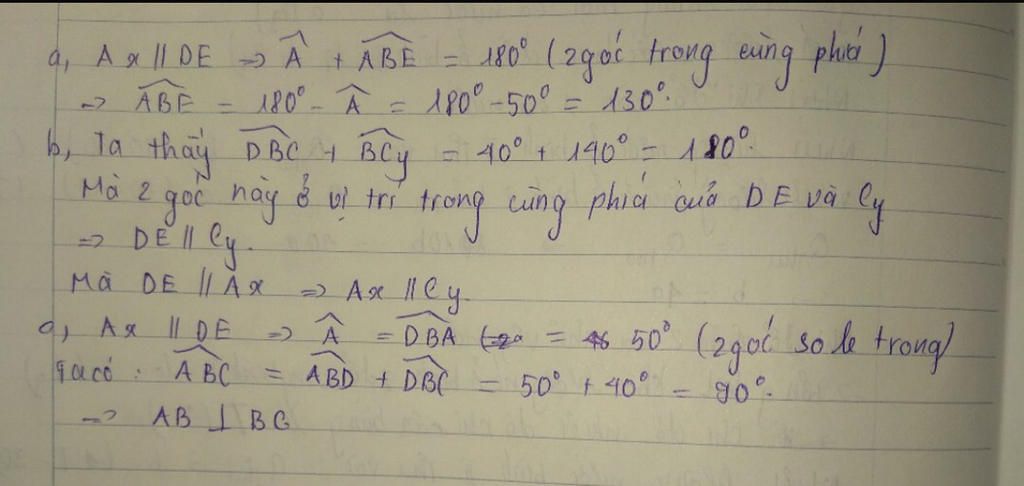 a, Ax // DE => Â + ABE = 180° (2 góc trong cùng phía)
=> ABE = 180° - Â = 180° - 50° = 130°.
b, Ta thấy DBC + BCy = 40° + 140° = 180°.
Mà 2 góc này ở vị trí trong cùng phía của DE và Cy
=> DE // Cy.
Mà DE // Ax => Ax // Cy.
c, Ax // DE => Â = DBA = 50° (2 góc so le trong)
Ta có: ABC = ABD + DBC = 50° + 40° = 90°.
=> AB ⊥ BC